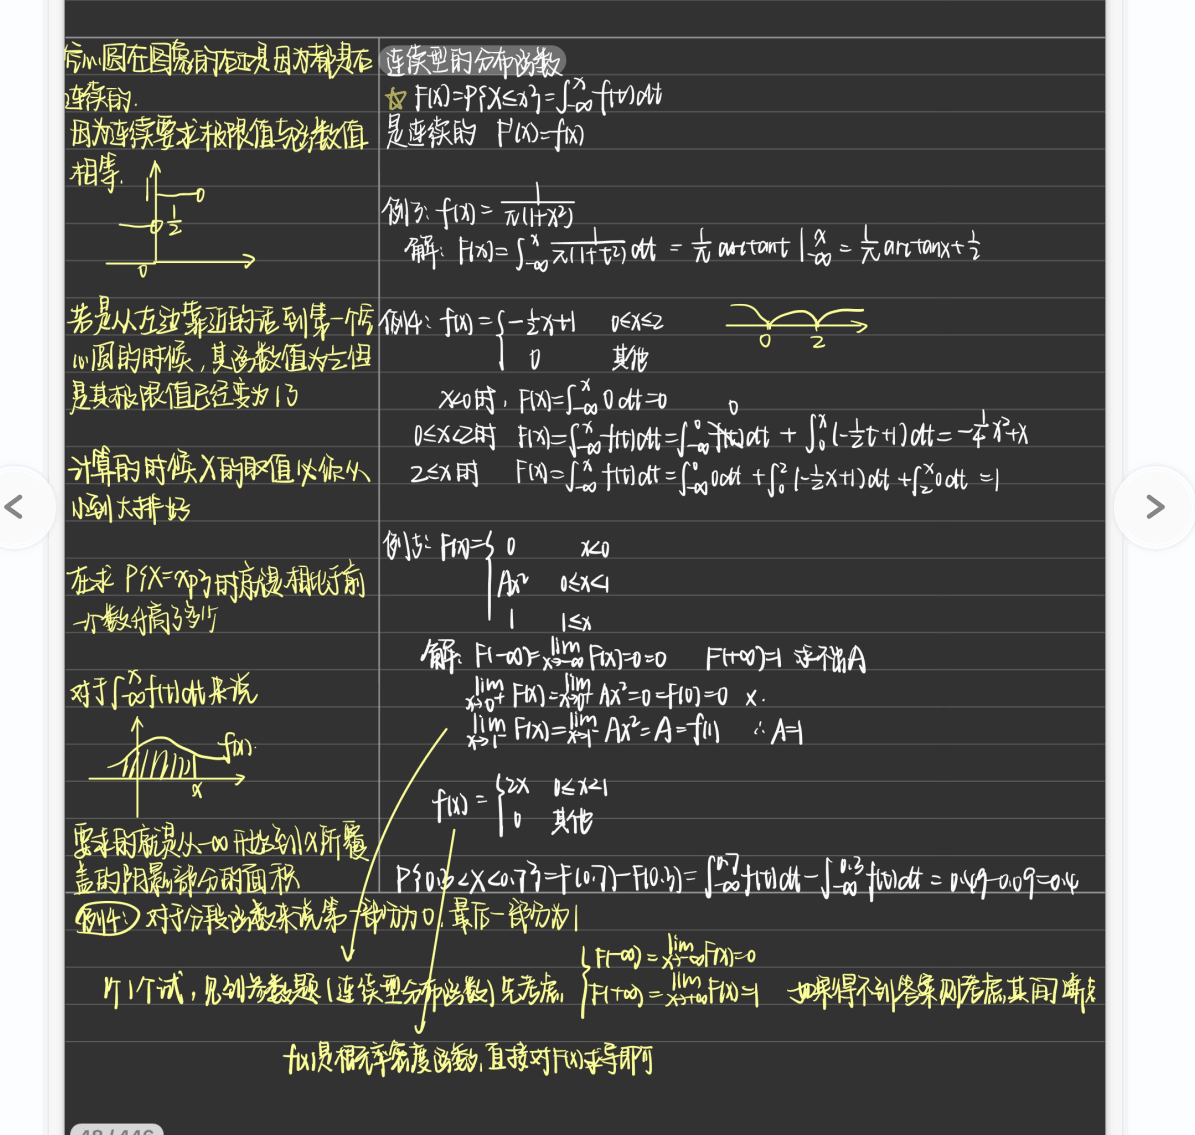 空心圆在图象的右边是因为都是右
连续的.
因为连续要求极限值与函数值
相等.
1
1/2
0
若是从左边靠近的话到第一个空
心圆的时候,其函数值为1/2但
是其极限值已经变为1了
计算的时候X的取值必须从
小到大排好
在求 P{X=xp}时应该相比于前
一个数升高了多少
对于∫_{-∞}^{x} f(t)dt来说
f(x).
x
要求的就是从-∞开始到x所覆
盖的阴影部分的面积
连续型的分布函数
☆ F(x)=P{X≤x}=∫_{-∞}^{x} f(t)dt
是连续的 F'(x)=f(x)
例3: f(x) = 1/(π(1+x²))
解: F(x)=∫_{-∞}^{x} 1/(π(1+t²)) dt = 1/π arctant |_{-∞}^{x} = 1/π arctanx+1/2
例4: f(x) = { -1/2x+1 0≤x≤2
0 其他
0 2
x<0时, F(x)=∫_{-∞}^{x} 0 dt=0
0≤x<2时 F(x)=∫_{-∞}^{x} f(t)dt=∫_{-∞}^{0} f(t)dt + ∫_{0}^{x} (-1/2t+1)dt=-1/4x²+x
0
2≤x时 F(x)=∫_{-∞}^{x} f(t)dt=∫_{-∞}^{0} 0dt+∫_{0}^{2} (-1/2x+1)dt+∫_{2}^{x} 0dt=1
例5: F(x)={ 0 x<0
Ax² 0≤x<1
1 1≤x
解: F(-∞)=lim_{x→-∞} F(x)=0=0 F(+∞)=1 求不出A
lim_{x→0⁺} F(x)=lim_{x→0⁺} Ax²=0=F(0)=0 x.
lim_{x→1⁻} F(x)=lim_{x→1⁻} Ax²=A=f(1) ∴A=1
f(x) = { 2x 0≤x<1
0 其他
P{0.3<X<0.7}=F(0.7)-F(0.3)=∫_{-∞}^{0.7} f(t)dt-∫_{-∞}^{0.3} f(t)dt=0.49-0.09=0.4
例4: 对于分段函数来说第一部分为0,最后一部分为1
见到参数题(连续型分布函数)先考虑 { F(-∞)=lim_{x→-∞} F(x)=0
F(+∞)=lim_{x→+∞} F(x)=1 如果得不到答案则考虑其间断点
f(x)是概率密度函数,直接对F(x)求导即可